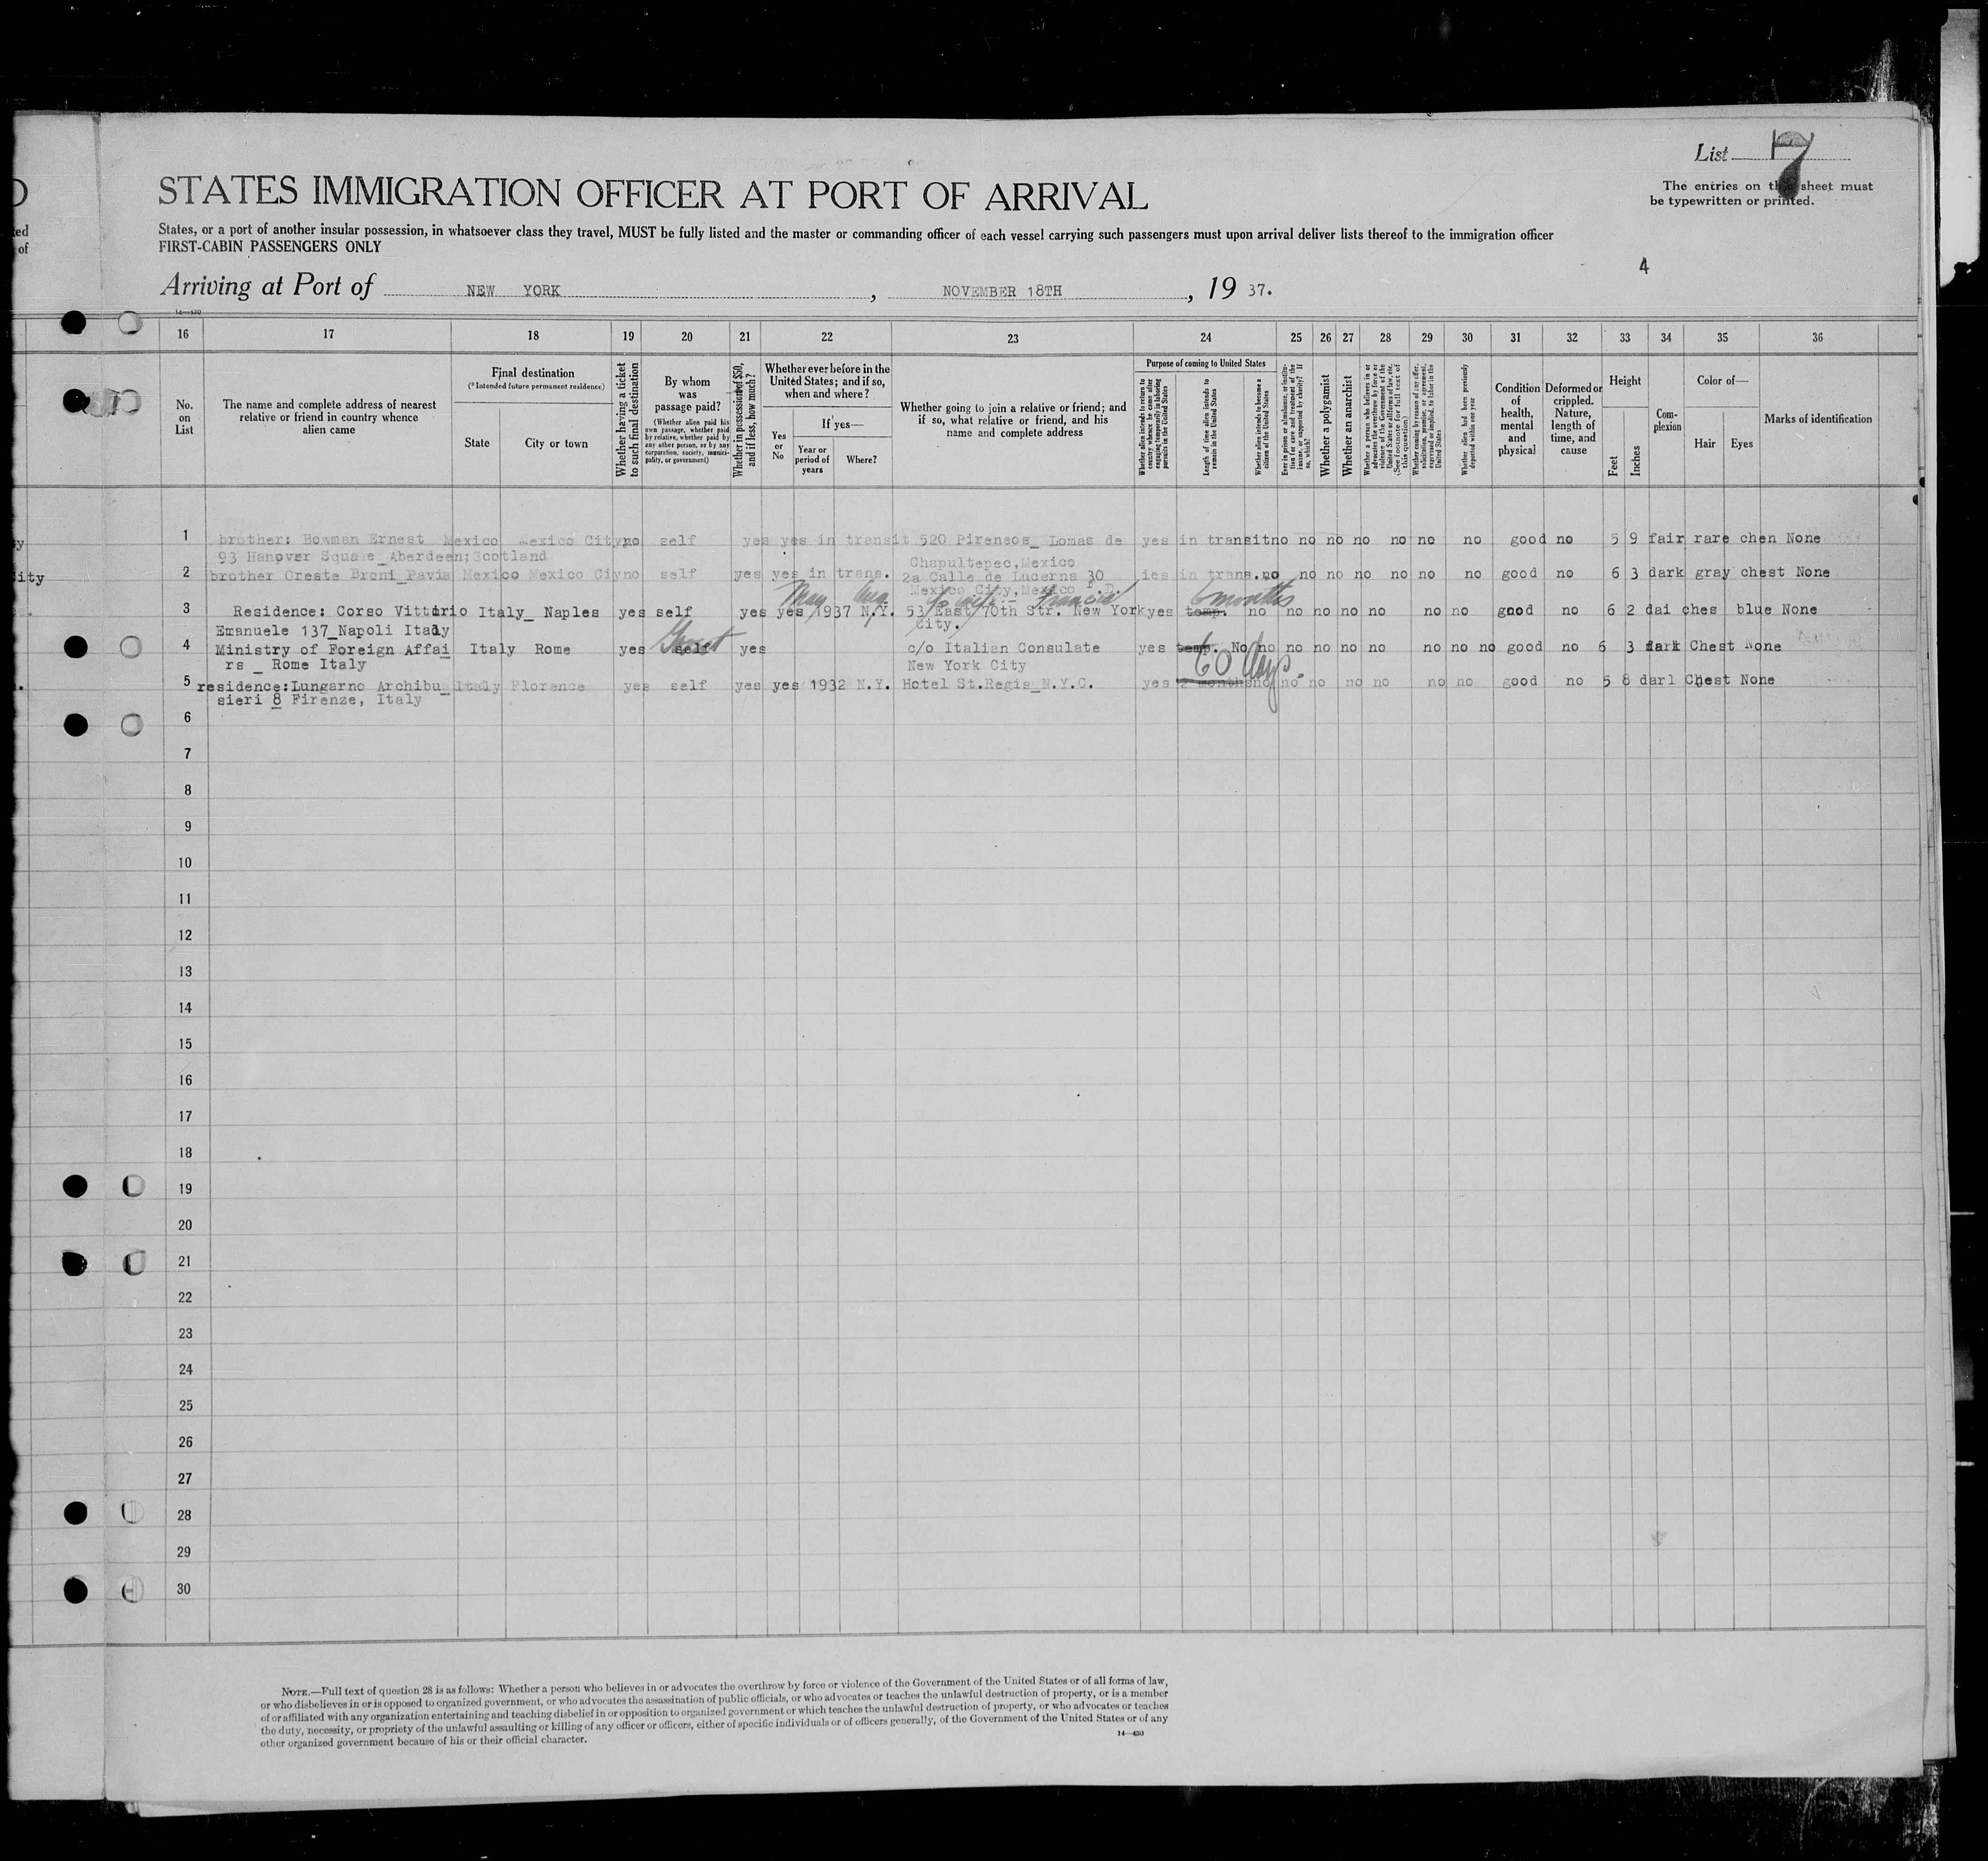 List 7
The entries on this sheet must
be typewritten or printed.
STATES IMMIGRATION OFFICER AT PORT OF ARRIVAL
ed
of
States, or a port of another insular possession, in whatsoever class they travel, MUST be fully listed and the master or commanding officer of each vessel carrying such passengers must upon arrival deliver lists thereof to the immigration officer
FIRST-CABIN PASSENGERS ONLY
4
Arriving at Port of NEW YORK, NOVEMBER 18TH, 19 37.
14—430
16 17 18 19 20 21 22 23 24 25 26 27 28 29 30 31 32 33 34 35 36
No.
on
List
The name and complete address of nearest
relative or friend in country whence
alien came
Final destination
(*Intended future permanent residence)
State
City or town
Whether having a ticket
to such final destination
By whom
was
passage paid?
(Whether alien paid his
own passage, whether paid
by relative, whether paid by
any other person, or by any
corporation, society, munici-
pality, or government)
Whether in possession of $50,
and if less, how much?
Whether ever before in the
United States; and if so,
when and where?
Yes
or
No
If yes—
Year or
period of
years
Where?
Whether going to join a relative or friend; and
if so, what relative or friend, and his
name and complete address
Purpose of coming to United States
Whether alien intends to return to
country whence he came after
engaging temporarily in laboring
pursuits in the United States
Length of time alien intends to
remain in the United States
Whether alien intends to become a
citizen of the United States
Ever in prison or almshouse, or institu-
tion for care and treatment of the
insane, or supported by charity? If
so, which?
Whether a polygamist
Whether an anarchist
Whether a person who believes in or
advocates the overthrow by force or
violence of the Government of the
United States or all forms of law, etc.
(See footnote for full text of
this question)
Whether coming by reason of any offer,
solicitation, promise, or agreement,
expressed or implied, to labor in the
United States
Whether alien had been previously
deported within one year
Condition
of
health,
mental
and
physical
Deformed or
crippled.
Nature,
length of
time, and
cause
Height
Feet
Inches
Com-
plexion
Color of—
Hair
Eyes
Marks of identification
1 brother: Bowman Ernest Mexico Mexico City no self yes yes in transit 520 Pireneos_ Lomas de yes in transit no no no no no no no good no 5 9 fair rare chen None
93 Hanover Square_Aberdeen;Scotland
Chapultepec,Mexico
2 brother Oreste Broni_Pavia Mexico Mexico Ci no self yes yes in trans. 2a Calle de Lucerna 30 ies in trans. no no no no no no no good no 6 3 dark gray chest None
Mexico City,Mexico F.D.
May Aug to wife - Francis 6 months
3 Residence: Corso Vittorio Italy_ Naples yes self yes yes 1937 N.Y. 53 East 70th Str. New York yes temp. no no no no no no no good no 6 2 dai ches blue None
City.
Emanuele 137_Napoli Italy
4 Ministry of Foreign Affai Italy Rome yes Govt self yes c/o Italian Consulate yes temp. No no no no no no no no no good no 6 3 dark Chest None
rs _ Rome Italy
New York City
60 days
5 residence:Lungarno Archibu_ Italy Florence yes self yes yes 1932 N.Y. Hotel St.Regis_N.Y.C. yes 2 months no no no no no no no good no 5 8 darl Chest None
sieri 8 Firenze, Italy
6
7
8
9
10
11
12
13
14
15
16
17
18
19
20
21
22
23
24
25
26
27
28
29
30
NOTE.—Full text of question 28 is as follows: Whether a person who believes in or advocates the overthrow by force or violence of the Government of the United States or of all forms of law,
or who disbelieves in or is opposed to organized government, or who advocates the assassination of public officials, or who advocates or teaches the unlawful destruction of property, or is a member
of or affiliated with any organization entertaining and teaching disbelief in or opposition to organized government or which teaches the unlawful destruction of property, or who advocates or teaches
the duty, necessity, or propriety of the unlawful assaulting or killing of any officer or officers, either of specific individuals or of officers generally, of the Government of the United States or of any
other organized government because of his or their official character.
14—430